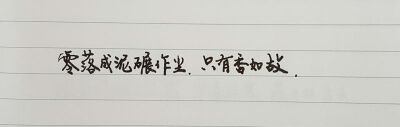 零落成泥碾作尘,只有香如故.